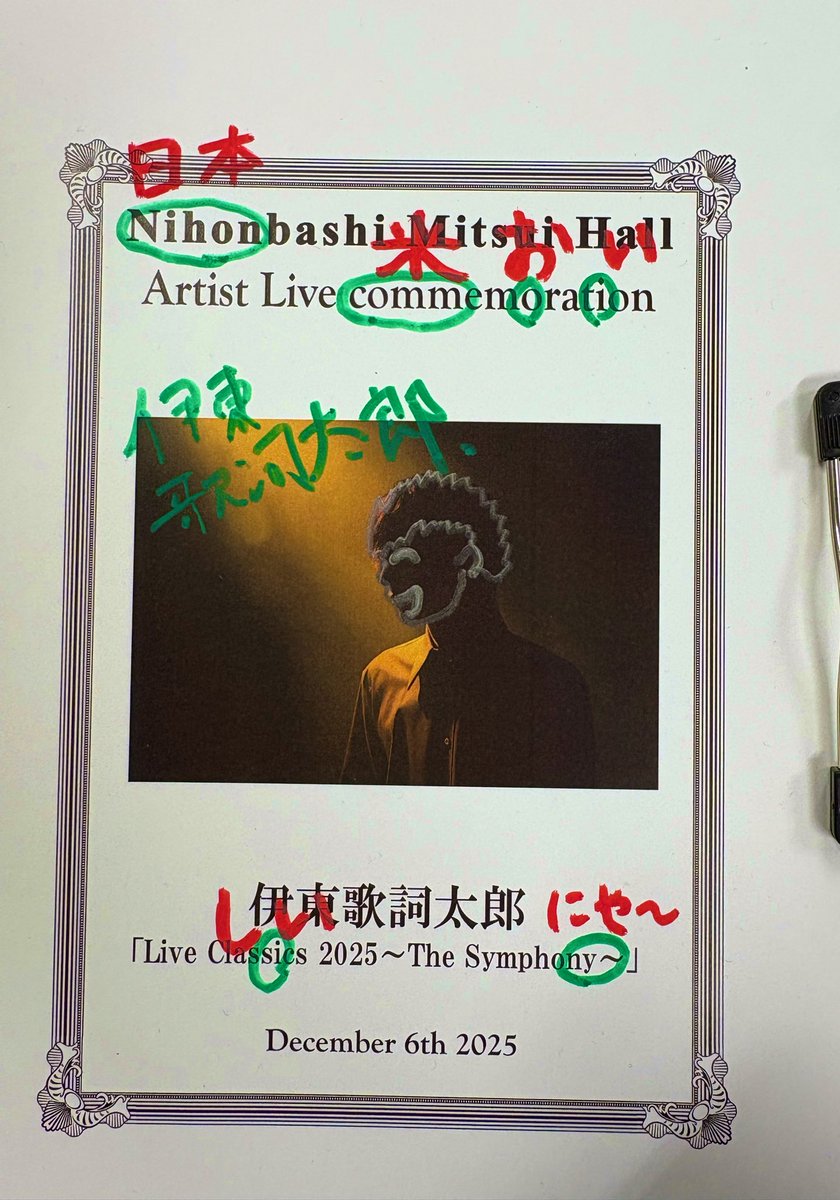 日本
Nihonbashi Mitsui Hall
米 おい
Artist Live commemoration
伊東
歌詞太郎.
しい
伊東歌詞太郎
にゃ〜
「Live Classics 2025〜The Symphony〜」
December 6th 2025